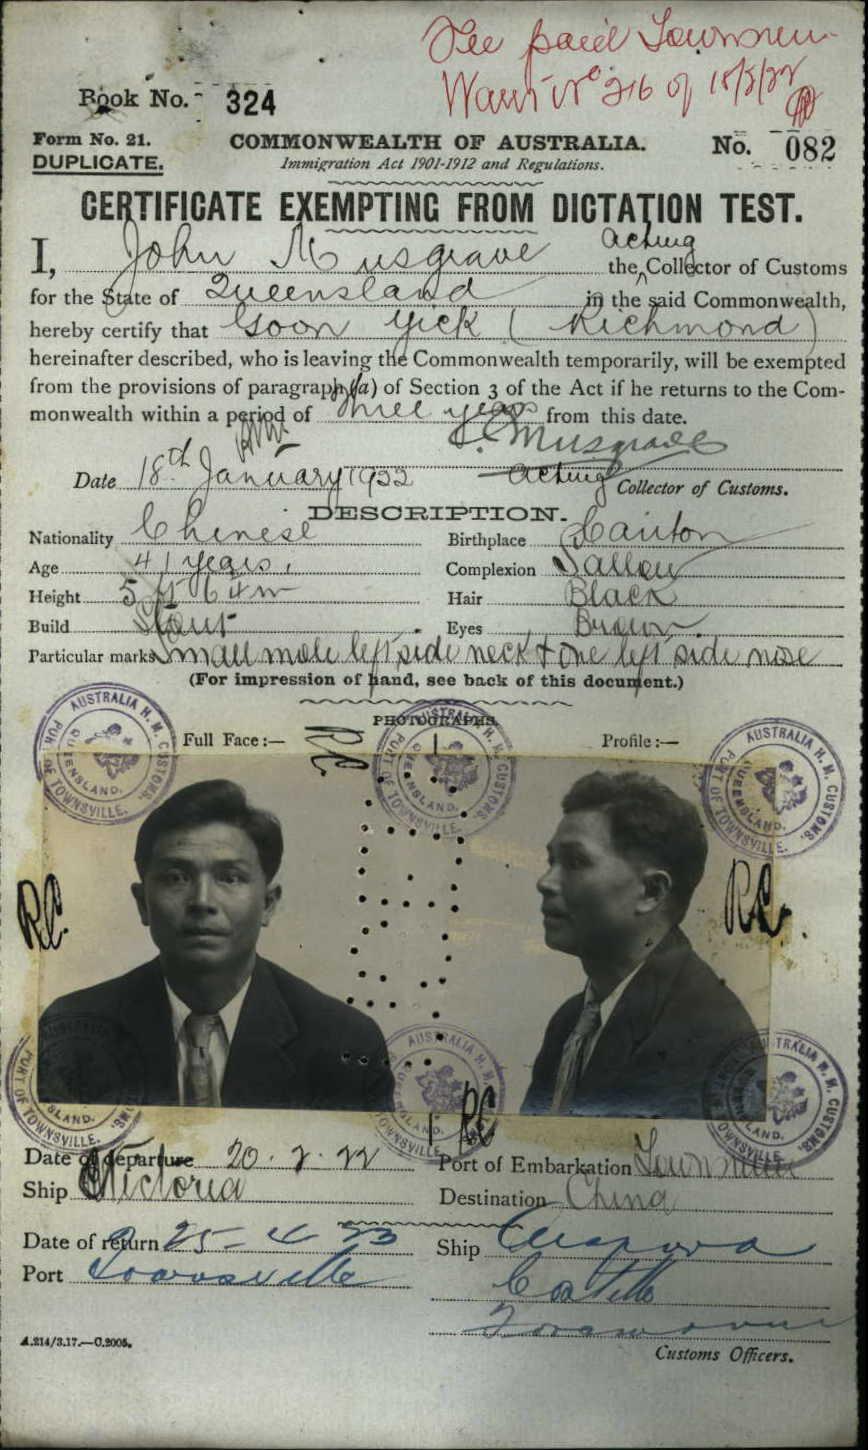 Fee paid Townsville
Warrt No 216 of 18/3/22
Book No. 324
Form No. 21.
COMMONWEALTH OF AUSTRALIA.
No. 082
DUPLICATE.
Immigration Act 1901-1912 and Regulations.
CERTIFICATE EXEMPTING FROM DICTATION TEST.
I, John Musgrave the Acting Collector of Customs
for the State of Queensland in the said Commonwealth,
hereby certify that Goon Yick (Richmond)
hereinafter described, who is leaving the Commonwealth temporarily, will be exempted
from the provisions of paragraph (a) of Section 3 of the Act if he returns to the Com-
monwealth within a period of three years from this date.
J. Musgrave
Date 18th January 1922 Acting Collector of Customs.
DESCRIPTION.
Nationality Chinese Birthplace Canton
Age 41 years. Complexion Sallow
Height 5 ft Hair Black
Build Stout Eyes Brown
Particular marks Small mole left side neck & one left side nose
(For impression of hand, see back of this document.)
PHOTOGRAPHS.
Full Face :— Profile :—
AUSTRALIA H. M. CUSTOMS. QUEENSLAND. PORT OF TOWNSVILLE.
AUSTRALIA H. M. CUSTOMS. QUEENSLAND. PORT OF TOWNSVILLE.
AUSTRALIA H. M. CUSTOMS. QUEENSLAND. PORT OF TOWNSVILLE.
RC
RC RC
RC
Date of departure 20.2.22 Port of Embarkation Townsville
Ship Victoria Destination China
Date of return 25-4-23 Ship
Port Townsville
Customs Officers.
A.214/3.17.—C.2005.